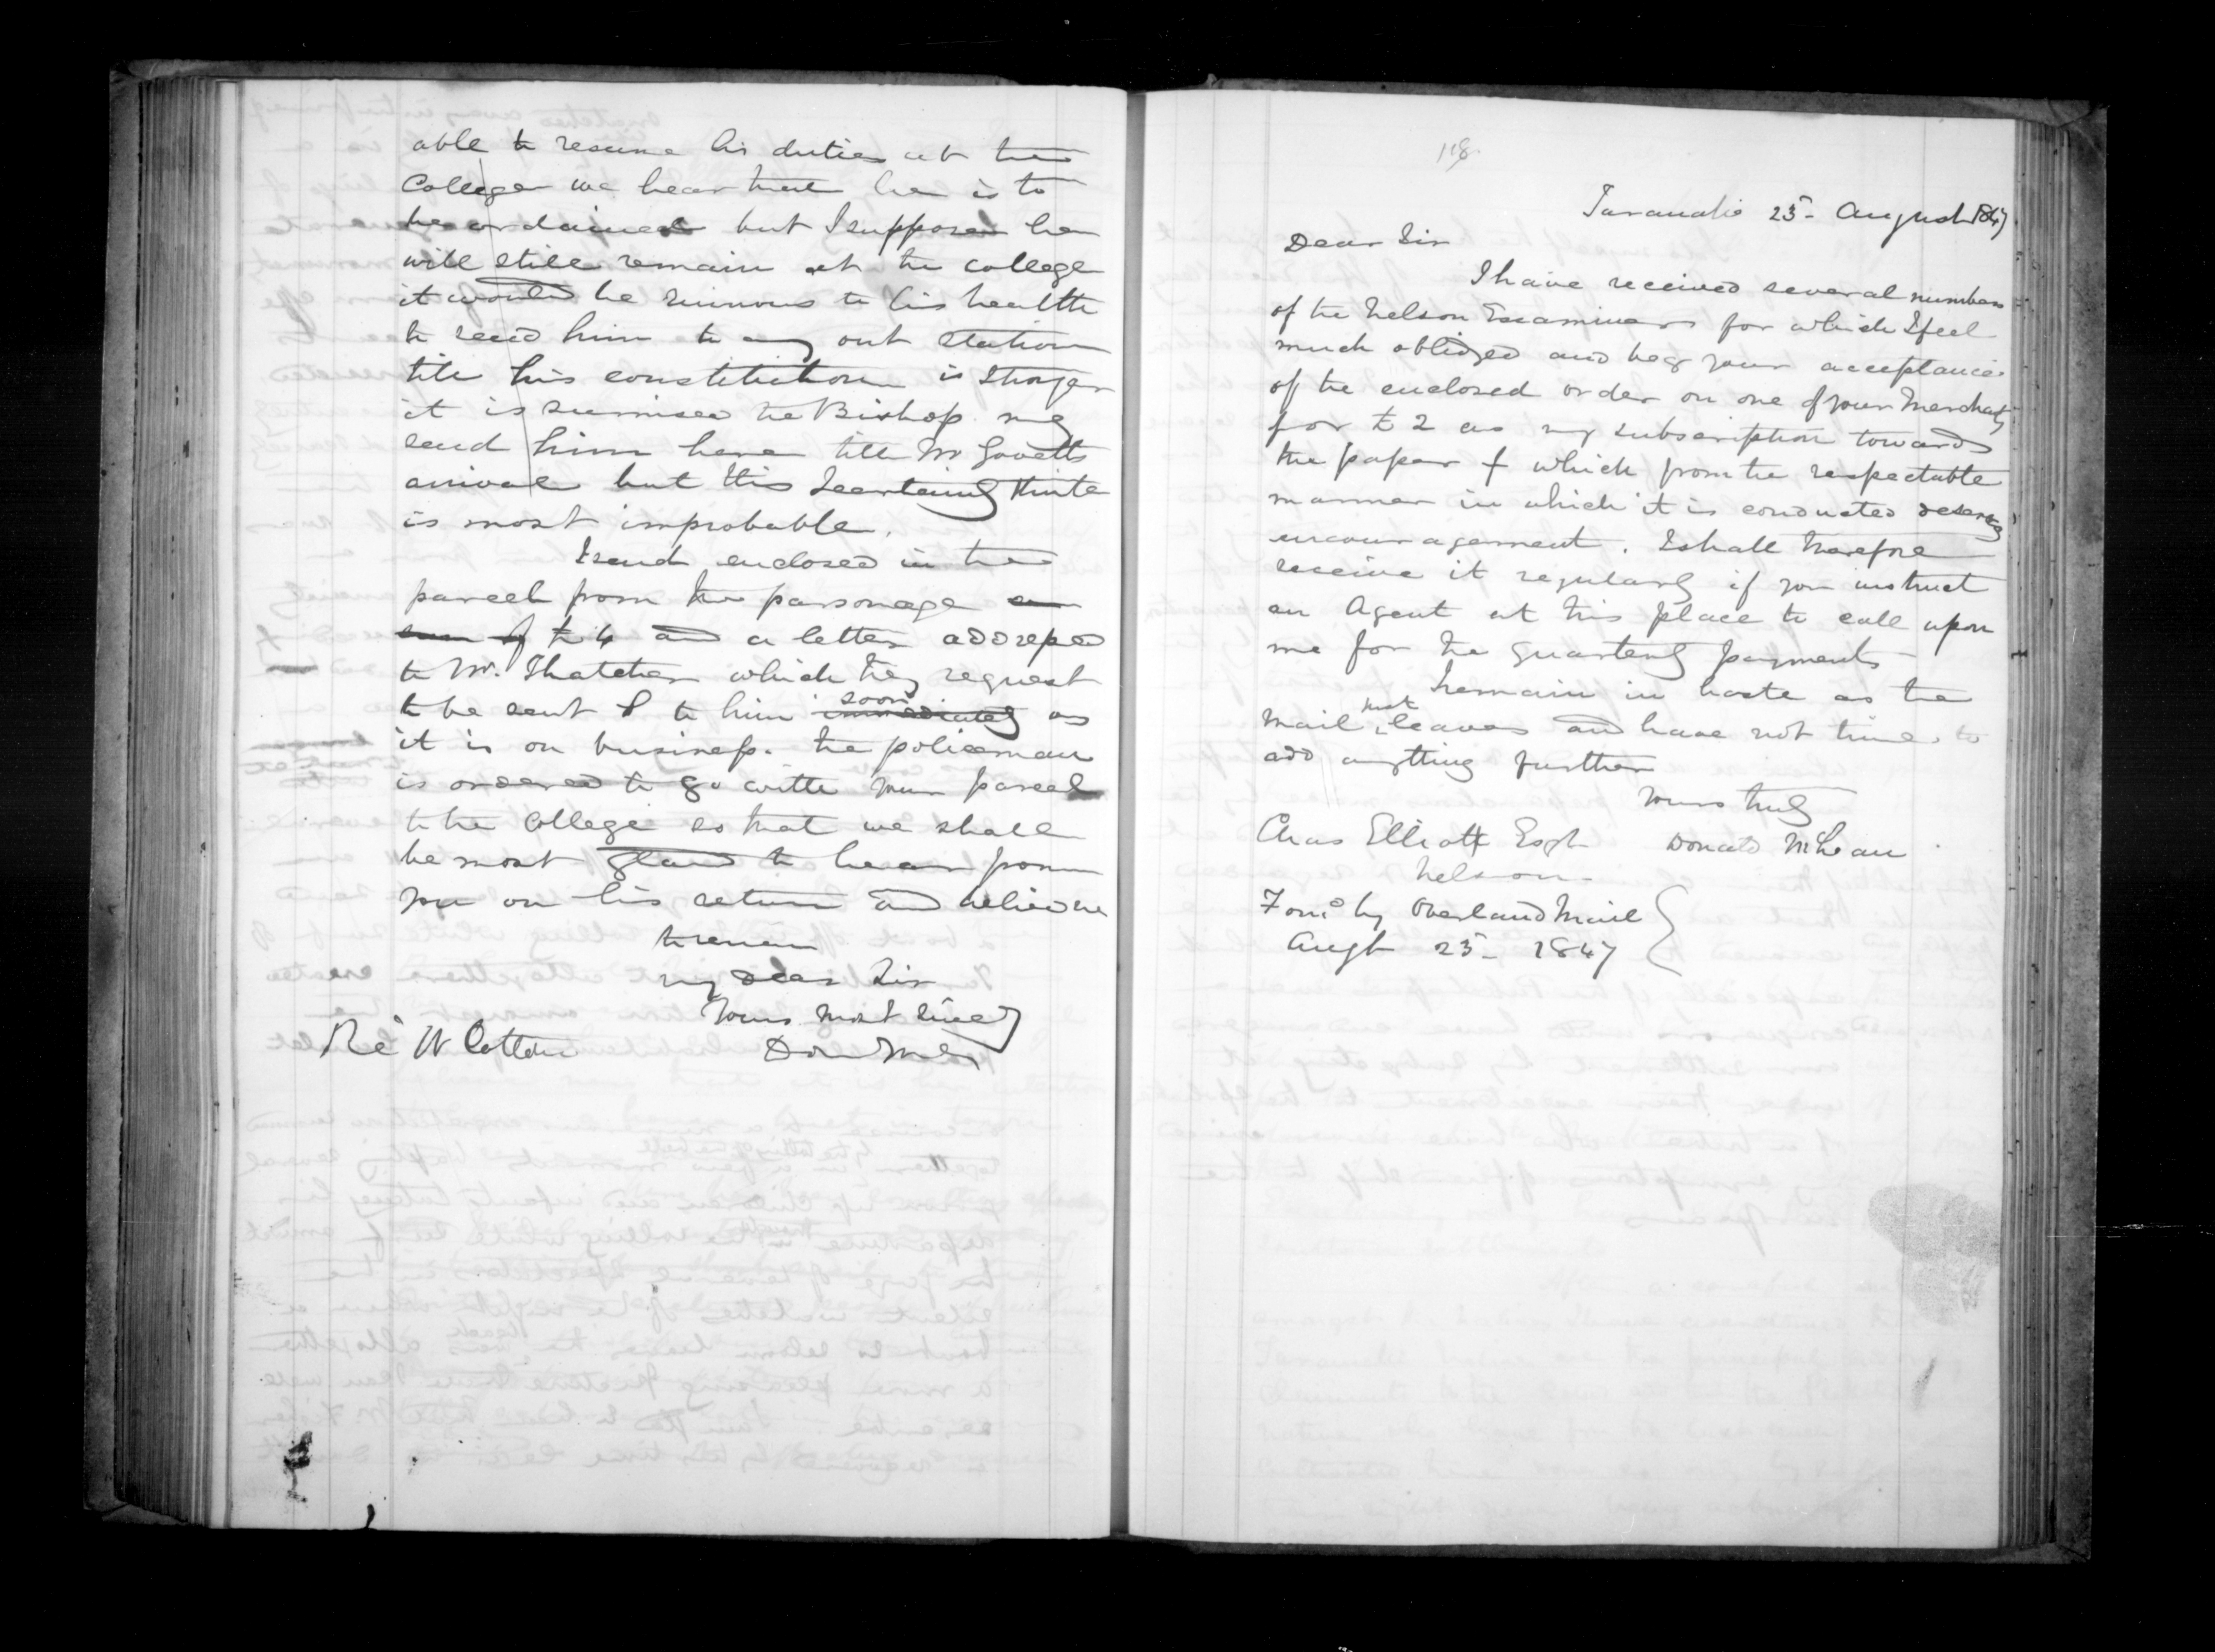 able to resume his duties at the
College we hear that he is to
be ordained but I suppose he
will still remain at the college
it would be ruinous to his health
to send him to any out station
till his constitution is stronger
it is surmised the Bishop may
send him here till Mr Govetts
arrival but this I certainly think
is most improbable.
I send enclosed in the
parcel from the parsonage
sum of £4 and a letter addressed
to Mr. Thatcher which they request
to be sent to him immediately soon as
it is on business. the policeman
is ordered to go with your parcel
to the College so that we shall
be most glad to hear from
you on his return and believe me
to remain
my dear Sir
Yours most Sincy
Don McL
Re W Cotton
118
Taranaki 25- August 1847
Dear Sir
I have received several numbers
of the Nelson Examiner for which I feel
much obliged and beg your acceptance
of the enclosed order on one of your Merchants
for £2 as my subscription towards
the paper & which from the respectable
manner in which it is conducted deserves
encouragement. I shall therefore
receive it regularly if you instruct
an Agent at this place to call upon
me for the quarterly payments
I remain in haste as the
mail just leaves and have not time to
add anything further
Yours truly
Chas Elliott Esqr Donald McLean
Nelson
Ford by Overland Mail
Augt 25- 1847